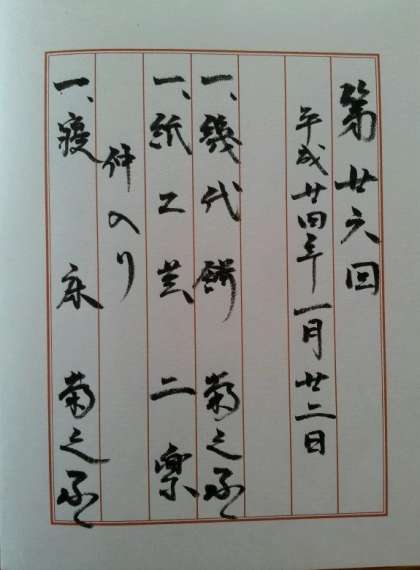 第廿六回
平成廿四年一月廿二日
一、幾代餅 菊之丞
一、紙工芸 二楽
仲入り
一、寝床 菊之丞